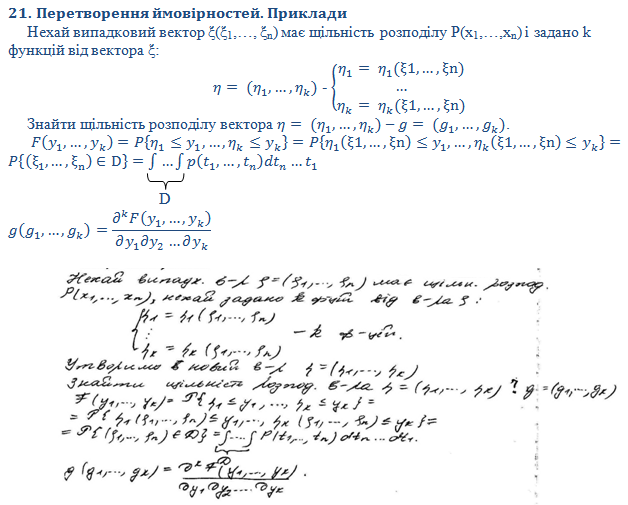 21. Перетворення ймовірностей. Приклади
Нехай випадковий вектор ξ(ξ₁,…, ξₙ) має щільність розподілу P(x₁,…,xₙ) і задано k
функцій від вектора ξ:
η₁ = η₁(ξ1, …, ξn)
η = (η₁, …, ηₖ) - { …
ηₖ = ηₖ(ξ1, …, ξn)
Знайти щільність розподілу вектора η = (η₁, …, ηₖ) – g = (g₁, …, gₖ).
F(y₁, …, yₖ) = P{η₁ ≤ y₁, …, ηₖ ≤ yₖ} = P{η₁(ξ1, …, ξn) ≤ y₁, …, ηₖ(ξ1, …, ξn) ≤ yₖ} =
P{(ξ₁, …, ξₙ) ∈ D} = ∫ … ∫ p(t₁, …, tₙ)dtₙ … t₁
D
g(g₁, …, gₖ) = ∂ᵏF(y₁, …, yₖ) / ∂y₁∂y₂ … ∂yₖ
Нехай випадк. в-р ξ=(ξ₁,…, ξₙ) має щільн. розпод.
P(x₁,…, xₙ), нехай задано k ф-ій від в-ра ξ:
{ η₁ = η₁(ξ₁,…, ξₙ)
⋮ – k ф-цій.
ηₖ = ηₖ(ξ₁,…, ξₙ)
Утворимо новий в-р η=(η₁,…, ηₖ)
Знайти щільність розпод. в-ра η=(η₁,…, ηₖ) ? g=(g₁,…,gₖ)
F(y₁,…, yₖ)= P{η₁≤y₁,…, ηₖ≤yₖ}=
= P{η₁(ξ₁,…, ξₙ)≤y₁,…, ηₖ(ξ₁,…, ξₙ)≤yₖ}=
= P{(ξ₁,…, ξₙ)∈D}= ∫…∫ P(t₁,…, tₙ)dtₙ…dt₁.
D
g(g₁,…, gₖ) = ∂ᵏF(y₁,…, yₖ) / ∂y₁∂y₂…∂yₖ.